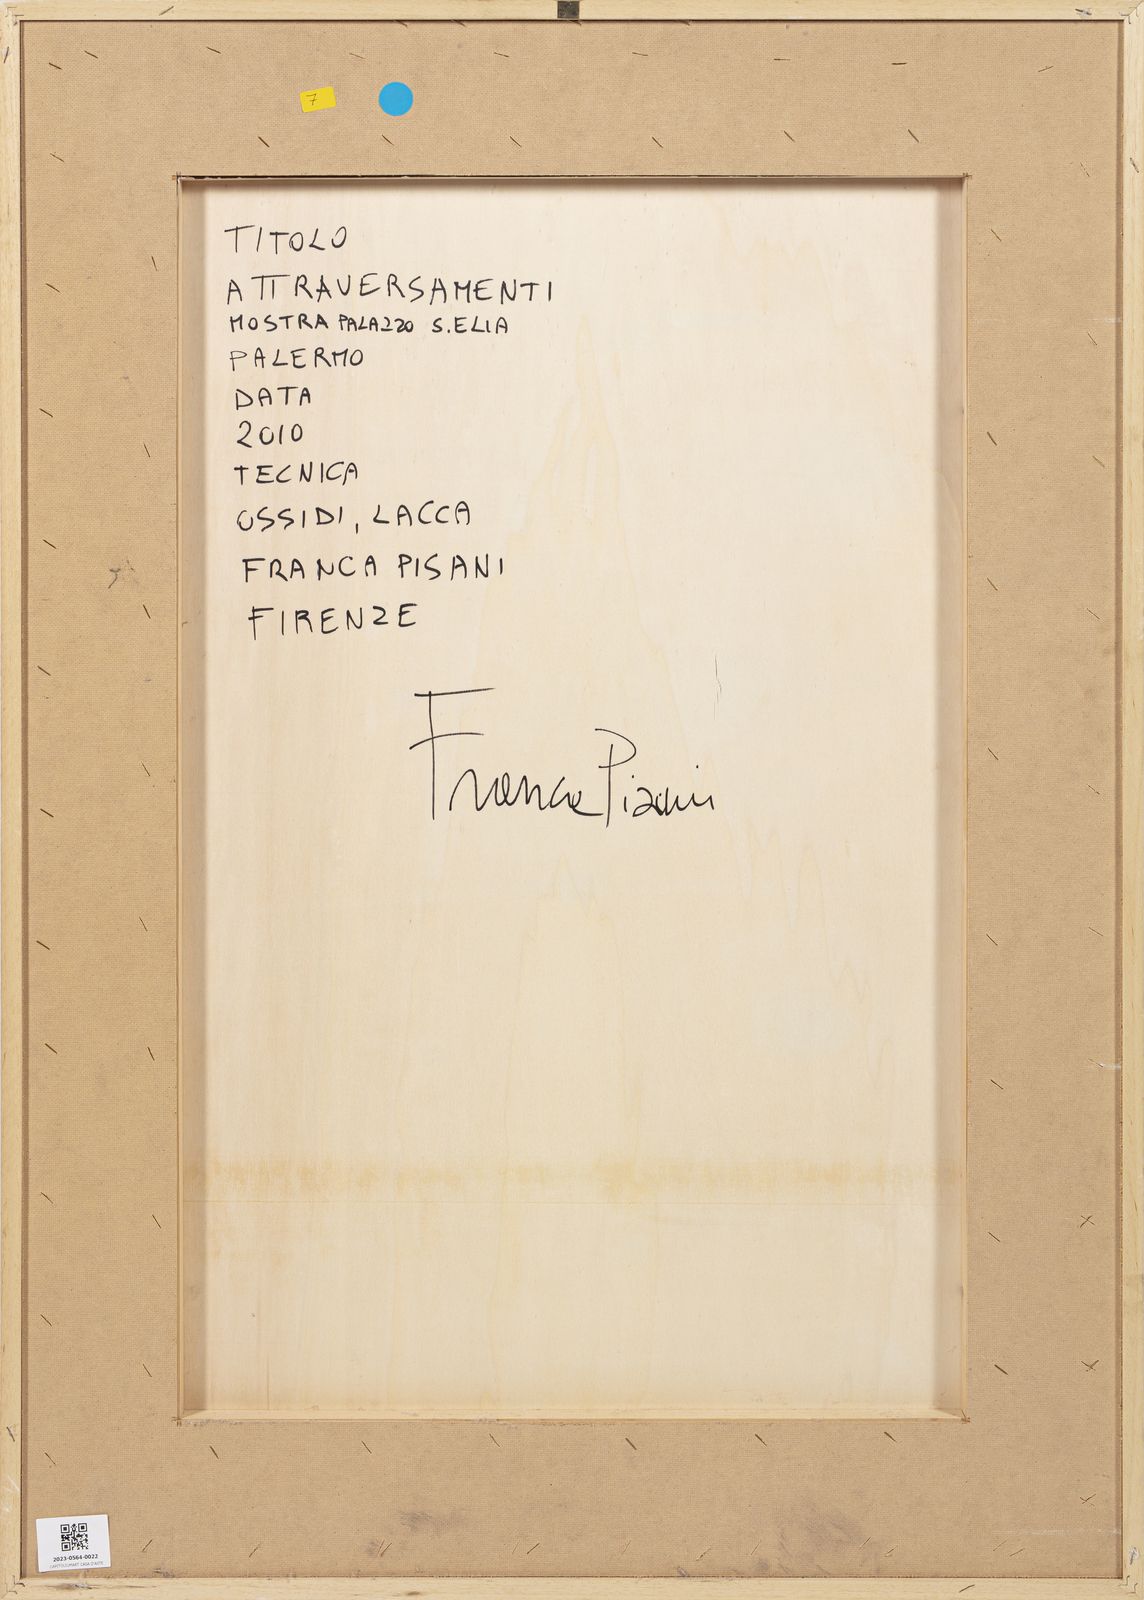 7
TITOLO
ATTRAVERSAMENTI
MOSTRA PALAZZO S.ELIA
PALERMO
DATA
2010
TECNICA
OSSIDI, LACCA
FRANCA PISANI
FIRENZE
Franca Pisani
2023-0564-0022
CAPITOLIUMART CASA D'ASTE